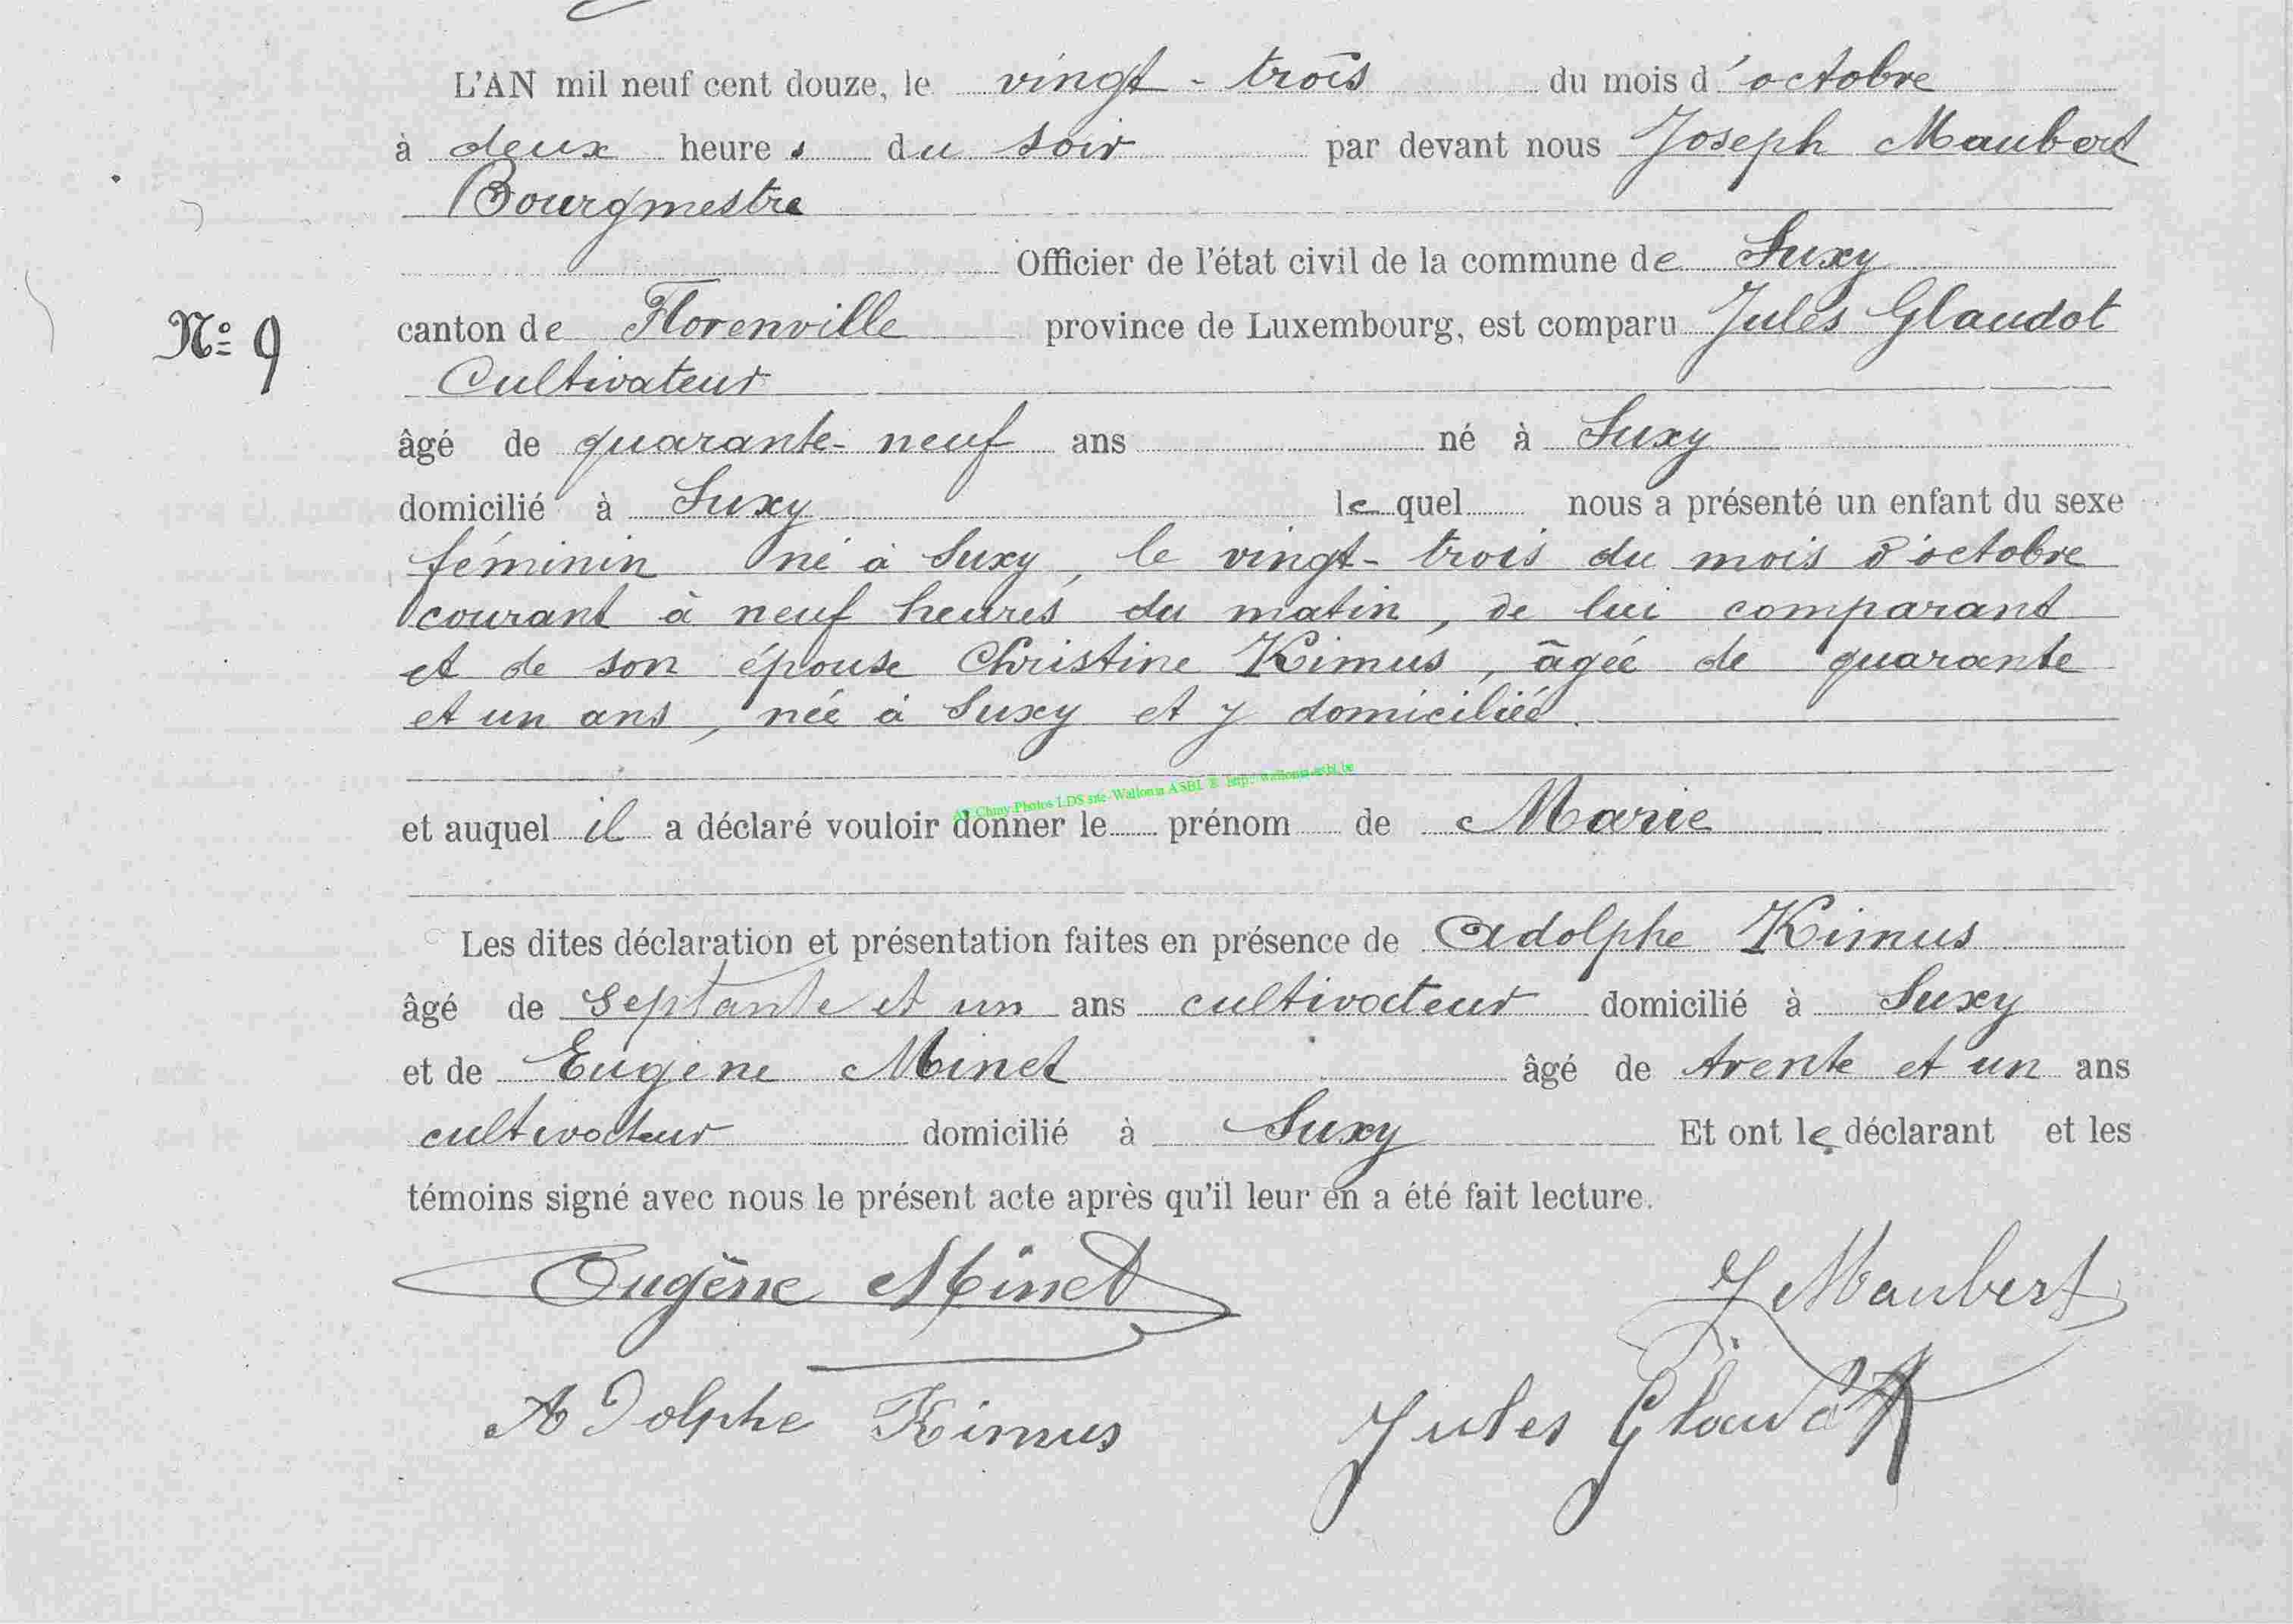 L'AN mil neuf cent douze, le vingt-trois du mois d'octobre
à deux heures du soir par devant nous Joseph Maubert
Bourgmestre
Officier de l'état civil de la commune de Suxy
N° 9
canton de Florenville province de Luxembourg, est comparu Jules Glaudot
Cultivateur
âgé de quarante-neuf ans né à Suxy
domicilié à Suxy lequel nous a présenté un enfant du sexe
féminin né à Suxy, le vingt-trois du mois d'octobre
courant à neuf heures du matin, de lui comparant
et de son épouse Christine Kimus, âgée de quarante
et un ans, née à Suxy et y domiciliée.
AC Chiny Photos LDS site Wallonia ASBL © http://wallonia-asbl.be
et auquel il a déclaré vouloir donner le prénom de Marie
Les dites déclaration et présentation faites en présence de Adolphe Kimus
âgé de septante et un ans cultivateur domicilié à Suxy
et de Eugène Minet âgé de trente et un ans
cultivateur domicilié à Suxy Et ont le déclarant et les
témoins signé avec nous le présent acte après qu'il leur en a été fait lecture.
Eugène Minet J Maubert
Adolphe Kimus Jules Glaudot